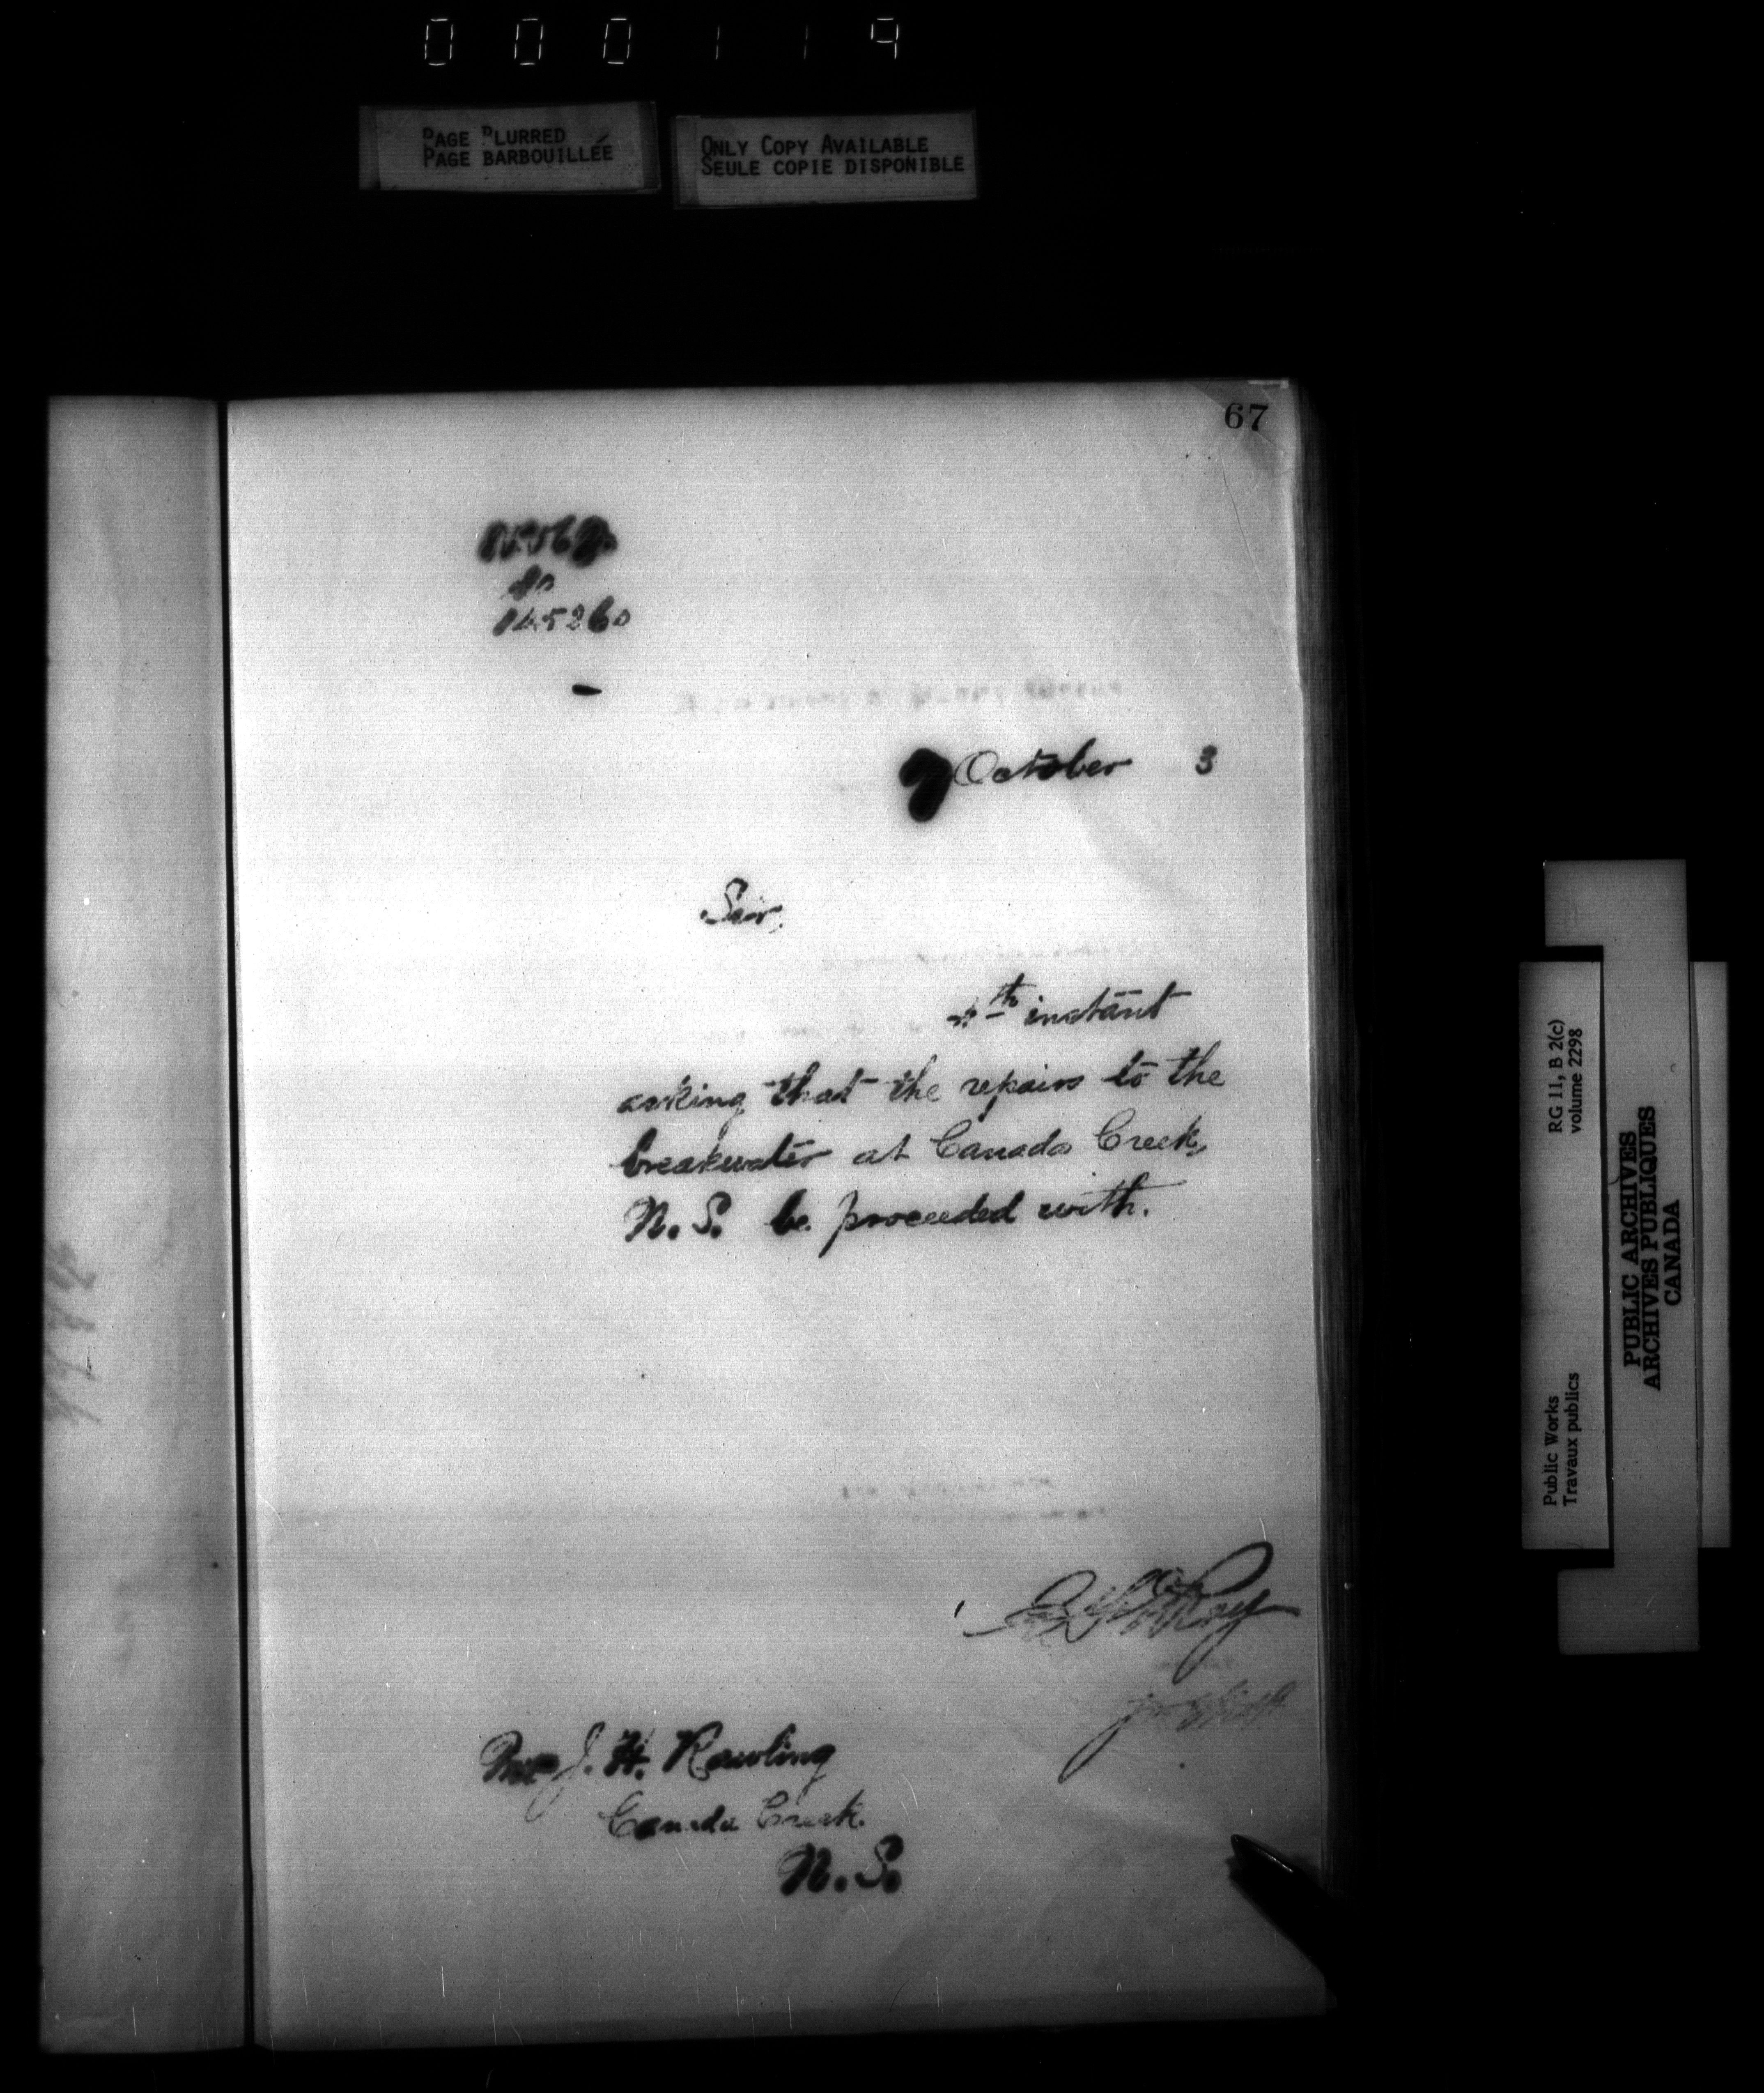 000119
PAGE BLURRED
PAGE BARBOUILLÉE
ONLY COPY AVAILABLE
SEULE COPIE DISPONIBLE
67
9 October 3
Sir,
th instant
asking that the repairs to the
breakwater at Canada Creek,
N. S. be proceeded with.
J. H. Rawling
Canada Creek
N. S.
RG 11, B 2(c)
volume 2298
Public Works
Travaux publics
PUBLIC ARCHIVES
ARCHIVES PUBLIQUES
CANADA